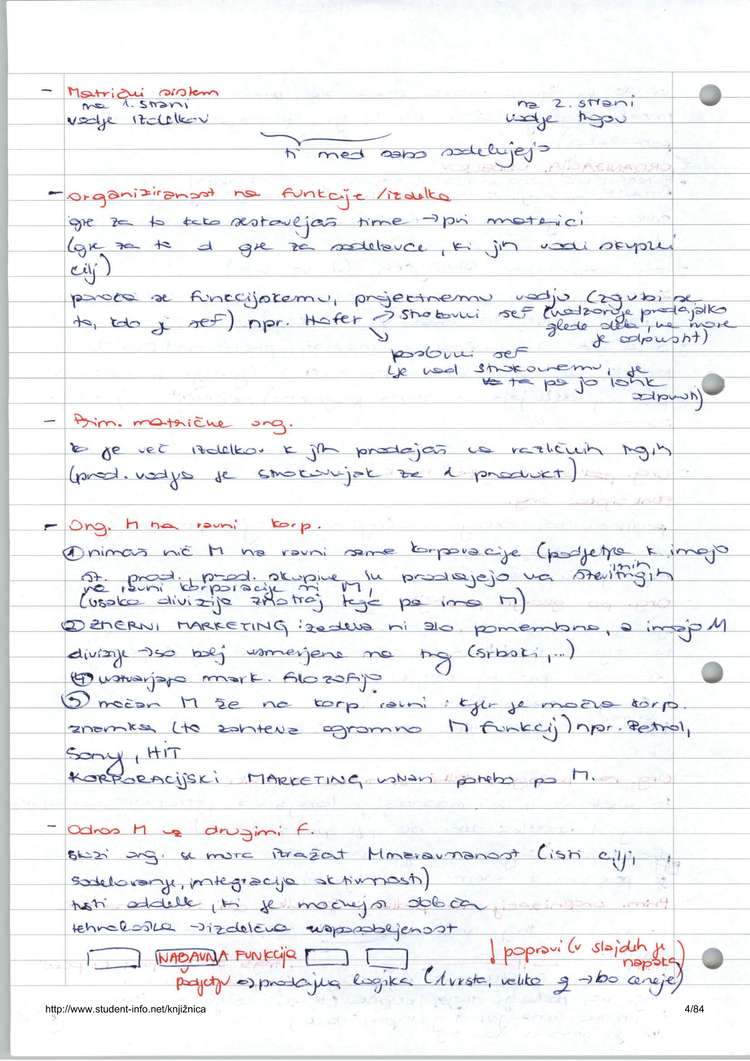 - Matrični sistem
na 1. strani na 2. strani
vodje izdelkov vodje trgov
ti med sabo sodelujejo
- organiziranost na funkcije / izdelke
gre za to kako sestavljaš time → pri matrici
(gre za to d gre za sodelavce, ki jih vodi skupni
cilj)
poroča se funkcijskemu, projektnemu vodju (zgubi se
to, kdo je šef) npr. Hofer → strokovni šef (nadzoruje prodajalko
glede dela, ne more
je odpustit)
poslovni šef
je nad strokovnemu, je
ta pa jo lohk
odpusti)
- Prim. matrične org.
je več izdelkov k jih prodajaš na različnih trgih
(prod. vodja je strokovnjak za 1 produkt)
- Org. M na ravni korp.
① nimaš nič M na ravni same korporacije (podjetja k imajo
št. prod., prod. skupine, in prodajajo na številnih trgih
na ravni korporacije ni M,
(vsaka divizija znotraj tega pa ima M)
② ZMERNI MARKETING: zadeva ni zlo pomembna, a imajo M
divizije → so bolj usmerjene na trg (srbski,...)
④ ustvarjajo mark. filozofijo
③ močan M že na korp. ravni: kjer je močna korp.
znamka (to zahteva ogromno M funkcij) npr. Petrol,
Sony, HIT
KORPORACIJSKI MARKETING, ustvari potrebo po M.
- Odnos M z drugimi f.
skozi org. se mora izražat M naravnanost (isti cilji,
sodelovanje, integracija aktivnosti)
tisti oddelk, ki je močnejši obloča
tehnološka → izdelčna usposobljenost
NABAVNA FUNKCIJA ↓ popravi (v slajdih je
napaka)
podjetju ⇒ prodajna logika (1 vrsta, velike q → bo ceneje)
http://www.student-info.net/knjižnica 4/84